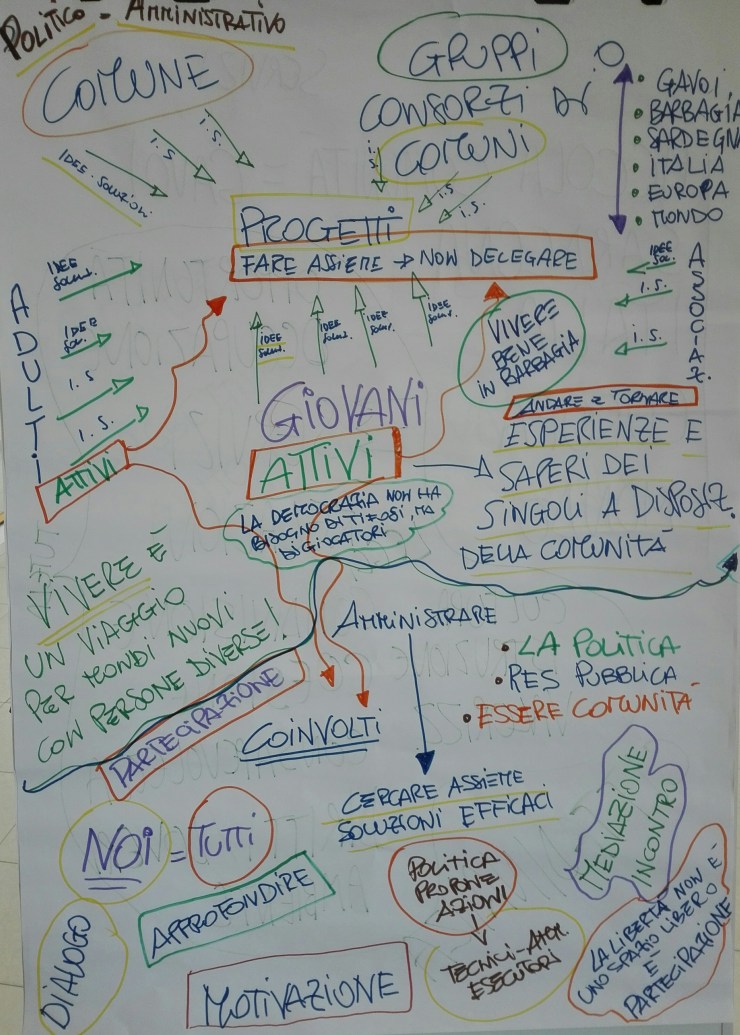 POLITICO - AMMINISTRATIVO
COMUNE
GRUPPI
CONSORZI DI
COMUNI
• GAVOI,
• BARBAGIA
• SARDEGNA
• ITALIA
• EUROPA
• MONDO
IDEE - SOLUZIONI
I.S.
I.S.
I.S.
I.S.
I.S.
PROGETTI
FARE ASSIEME → NON DELEGARE
ADULTI
IDEE SOLUZ.
IDEE SOL.
I.S
I.S
ATTIVI
IDEE SOLUZ.
IDEE SOLUZ.
IDEE SOLUZ.
IDEE SOLUZ.
ASSOCIAZ.
IDEE SOL.
I.S.
I.S.
GIOVANI
ATTIVI
VIVERE
BENE
IN BARBAGIA
ANDARE E TORNARE
ESPERIENZE E
SAPERI DEI
SINGOLI A DISPOSIZ.
DELLA COMUNITÀ
LA DEMOCRAZIA NON HA
BISOGNO DI TIFOSI, MA
DI GIOCATORI
VIVERE È
UN VIAGGIO
PER MONDI NUOVI
CON PERSONE DIVERSE!
PARTECIPAZIONE
COINVOLTI
AMMINISTRARE
• LA POLITICA
• RES PUBBLICA
• ESSERE COMUNITÀ
CERCARE ASSIEME
SOLUZIONI EFFICACI
NOI = TUTTI
APPROFONDIRE
DIALOGO
MOTIVAZIONE
POLITICA
PROPONE
AZIONI
TECNICI-AMM.
ESECUTORI
MEDIAZIONE
INCONTRO
LA LIBERTÀ NON È
UNO SPAZIO LIBERO
È
PARTECIPAZIONE